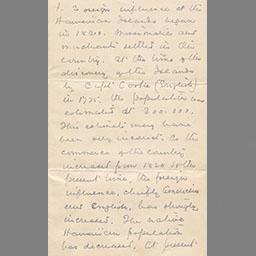 1. Foreign influence at the
Hawaiian Islands began
in 1820. Missionaries and
merchants settled in this
country. At the time of the
discovery of the Islands
by Capt Cooke (English)
in 177-. the population was
estimated at 300.000.
This estimate may have
been very incorrect. As the
commerce of the country
increased from 1820 to the
present time, the foreign
influence, chiefly American
and English, has steadily
increased. The native
Hawaiian population
has decreased. At present